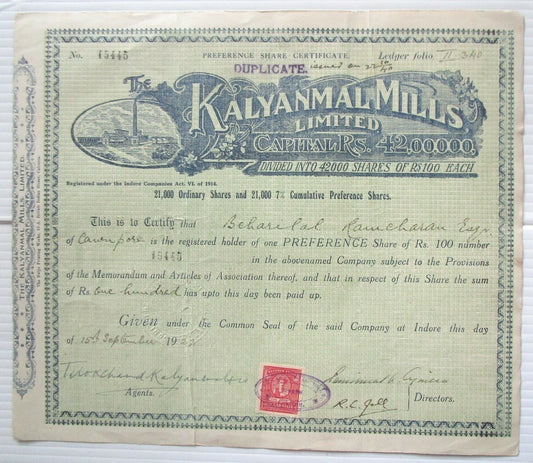 No. 15445 PREFERENCE SHARE CERTIFICATE. Ledger folio. II 340
DUPLICATE. issued on
THE
KALYANMAL MILLS
LIMITED
CAPITAL RS. 42,00,000,
DIVIDED INTO 42000 SHARES OF RS 100 EACH
Registered under the Indore Companies Act. VI. of 1914.
21,000 Ordinary Shares and 21,000 7% Cumulative Preference Shares.
This is to Certify that Beharilal Ramcharan Esqr
of Cawnpore is the registered holder of one PREFERENCE Share of Rs. 100 number
15445 in the abovenamed Company subject to the Provisions
of the Memorandum and Articles of Association thereof, and that in respect of this Share the sum
of Rs One hundred has upto this day been paid up.
Given under the Common Seal of the said Company at Indore this day
of 15th September 19
Tilokchand Kalyanmal & Co
Agents.
Directors.
THE KALYANMAL MILLS LIMITED.